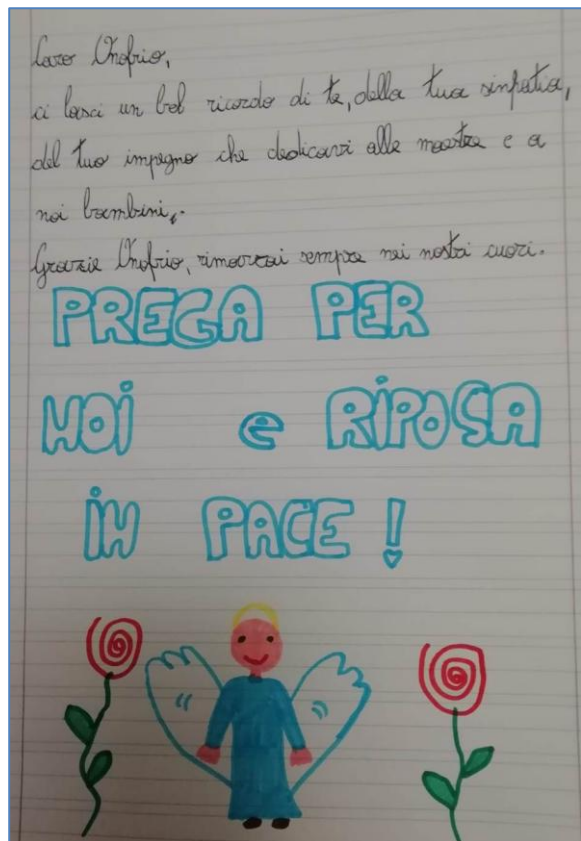 Caro Onofrio,
ci lasci un bel ricordo di te, della tua simpatia,
del tuo impegno che dedicavi alle maestre e a
noi bambini.
Grazie Onofrio, rimarrai sempre nei nostri cuori.
PREGA PER
NOi e RiPOSA
iN PACE !